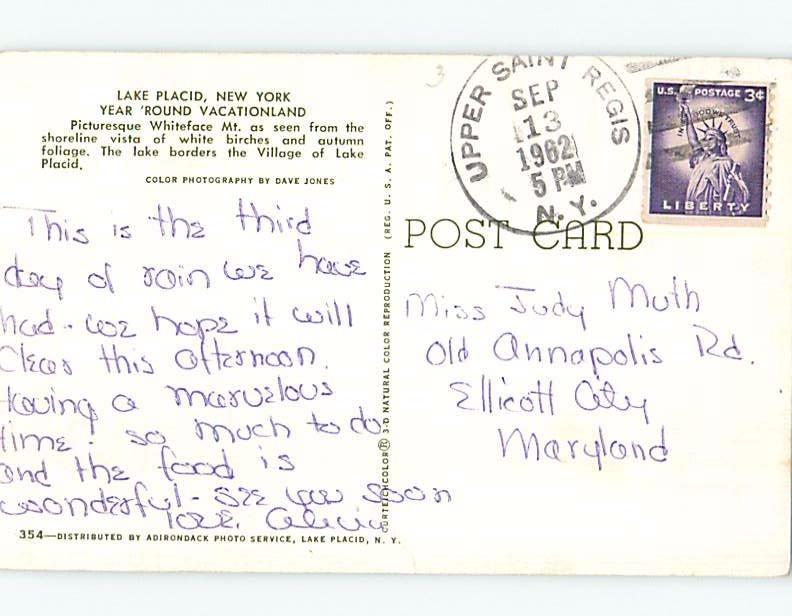 LAKE PLACID, NEW YORK
YEAR 'ROUND VACATIONLAND
Picturesque Whiteface Mt. as seen from the
shoreline vista of white birches and autumn
foliage. The lake borders the Village of Lake
Placid.
COLOR PHOTOGRAPHY BY DAVE JONES
This is the third
day of rain we have
had - we hope it will
Clear this afternoon.
Having a marvelous
time. so much to do
and the food is
wonderful - see you soon
love, Alicia
354—DISTRIBUTED BY ADIRONDACK PHOTO SERVICE, LAKE PLACID, N. Y.
CURTEICHCOLOR® 3-D NATURAL COLOR REPRODUCTION (REG. U. S. A. PAT. OFF.)
3
UPPER SAINT REGIS
SEP
13
1962
5 PM
N.Y.
U.S. POSTAGE 3¢
IN GOD WE TRUST
LIBERTY
POST CARD
Miss Judy Muth
Old Annapolis Rd.
Ellicott City
Maryland